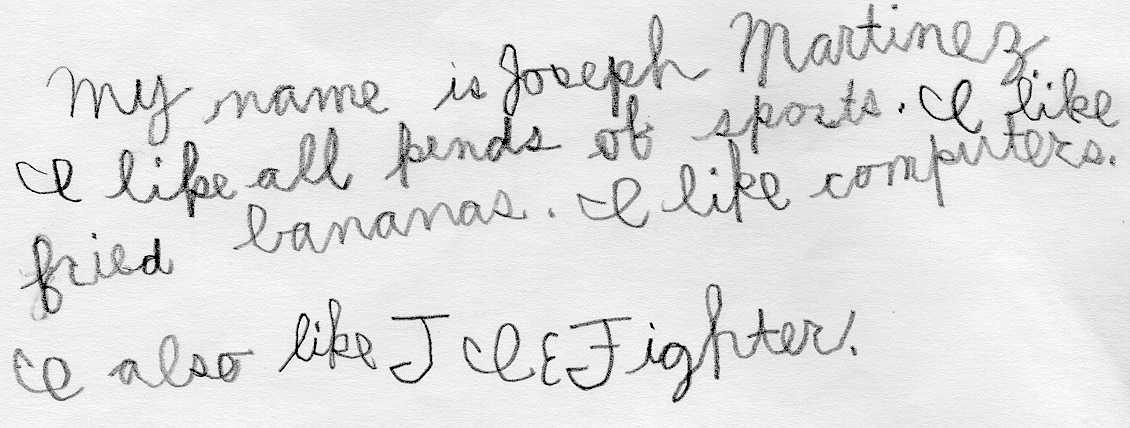 My name is Joseph Martinez
I like all kinds of sports. I like
fried bananas. I like computers.
I also like TIE Fighter!